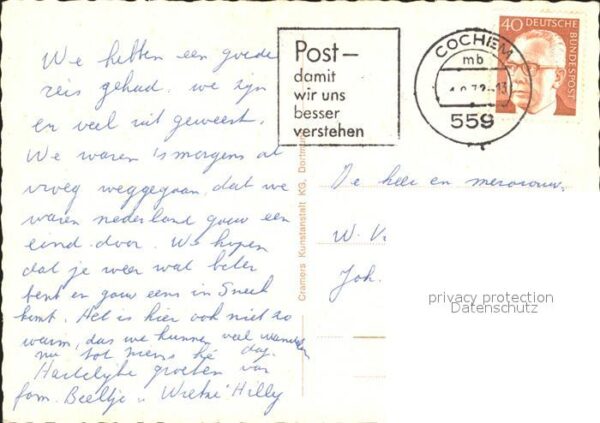 We hebben een goede
reis gehad. we zijn
er veel uit geweest.
We waren 's morgens al
vroeg weggegaan, dat we
waren nederland gauw een
eind door. We hopen
dat je weer wat beter
bent en gauw eens in Sneek
komt. Het is hier ook niet zo
warm, dus we kunnen veel wandelen
nu tot mens he dag.
Hartelijke groeten van
fam. Beeltje u Wietse Hilly
Post—
damit
wir uns
besser
verstehen
COCHEM
mb
559
40 DEUTSCHE
BUNDESPOST
Cramers Kunstanstalt KG, Dortmund
De heer en mevrouw
W. V
Joh.
privacy protection
Datenschutz